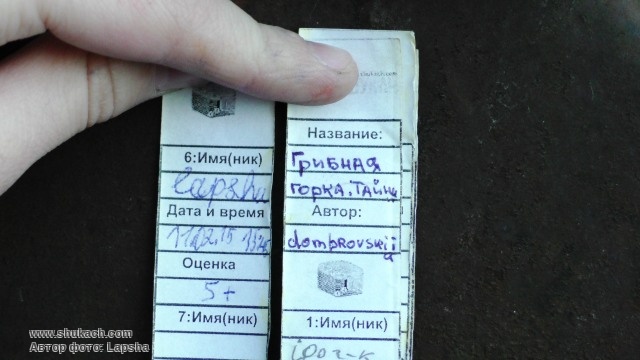 6:Имя(ник)
Lapsha
Дата и время
11.02.15
Оценка
5+
7:Имя(ник)
shukach.com
Название:
Грибная
горка. Тайна
Автор:
dombrovskij
1:Имя(ник)
www.shukach.com
Автор фото: Lapsha